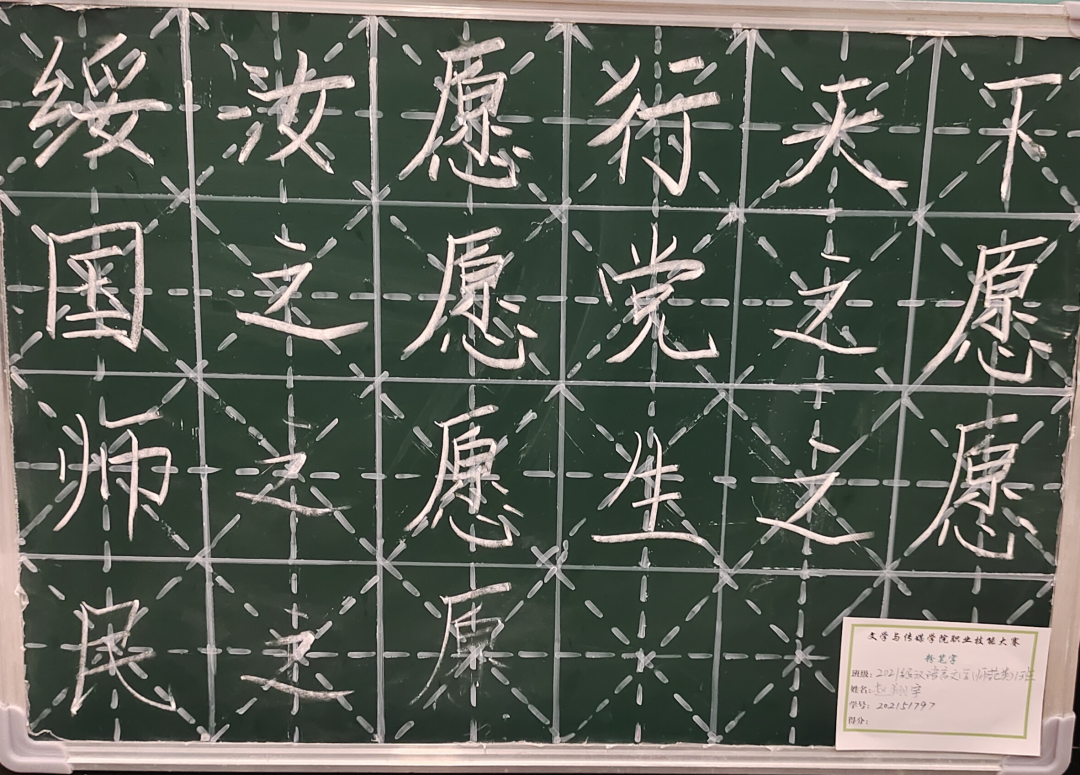 绥汝愿行天下
国之愿党之愿
师之愿生之愿
民之原
文学与传媒学院职业技能大赛
粉笔字
班级：2021级汉语言文学(师范类)1班
姓名：赵翔宇
学号：202151797
得分：